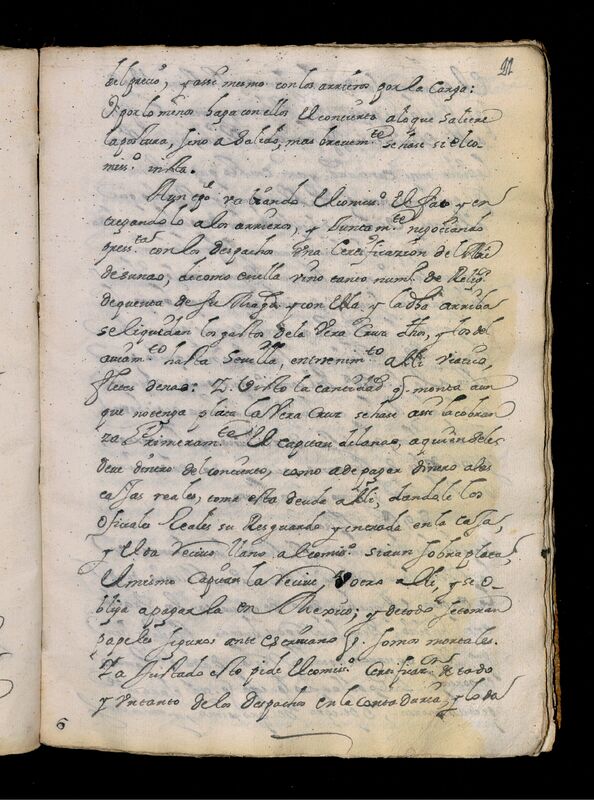 22
del precio, y assi mesmo con los arrieros por la Carga:
O por lo menos haga con ellos el concierto a lo que saliere
la postura, sino a salido, mas brevem.te se hase si el co-
miss.º insta.
Aun tpō va dando el comiss.º El y en
tregandolo a los arrieros, y Juntam.te negociando
press.tar con los despachos una Certificazion del
de como en ella vino tanto num.º de Relig.os
de quenta de su Mag.d y con ella y la dha arriba
se liquidan los gastos de la Vera Cruz dhos, y los del
aviam.to hasta Sevilla, entrenim.to alli viatico,
fletes de nao: 2. Visto la cantidad q. monta aun
que no tenga plata la Vera Cruz se hase assi la cobran
za Primeram.te El capitan de la nao, a quien se le
deve dinero del concierto, como a de pagar dinero a las
cajas reales, toma esta deuda alli, dandole los
oficiales Reales su Resguardo y entrada en la caja,
y esta Recivo llano al comiss.º si aun sobra plata,
El mismo Capitan la Recive, u otro alli, y se o-
bliga a pagarla en Mexico; y de todo se toman
papeles siguros ante escrivano q. somos mortales.
Ya Justado esto pide El comiss.º Certificaz.n de todo
y un tanto de los despachos en la contaduria, y lo da
6